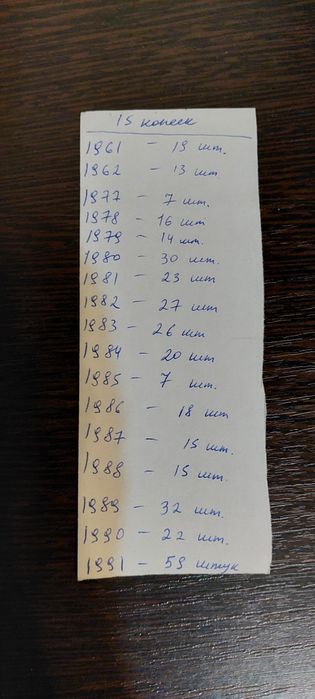 15 копеек
1961 - 19 шт.
1962 - 13 шт
1977 - 7 шт.
1978 - 16 шт
1979 - 14 шт.
1980 - 30 шт.
1981 - 23 шт
1982 - 27 шт
1983 - 26 шт
1984 - 20 шт
1985 - 7 шт.
1986 - 18 шт
1987 - 15 шт.
1988 - 15 шт.
1989 - 32 шт.
1990 - 22 шт.
1991 - 59 штук